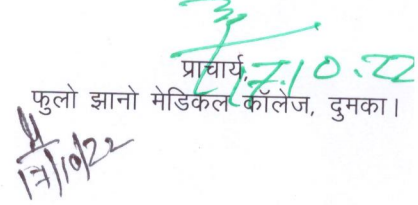 17.10.22
प्राचार्य,
फुलो झानो मेडिकल कॉलेज, दुमका।
17/10/22